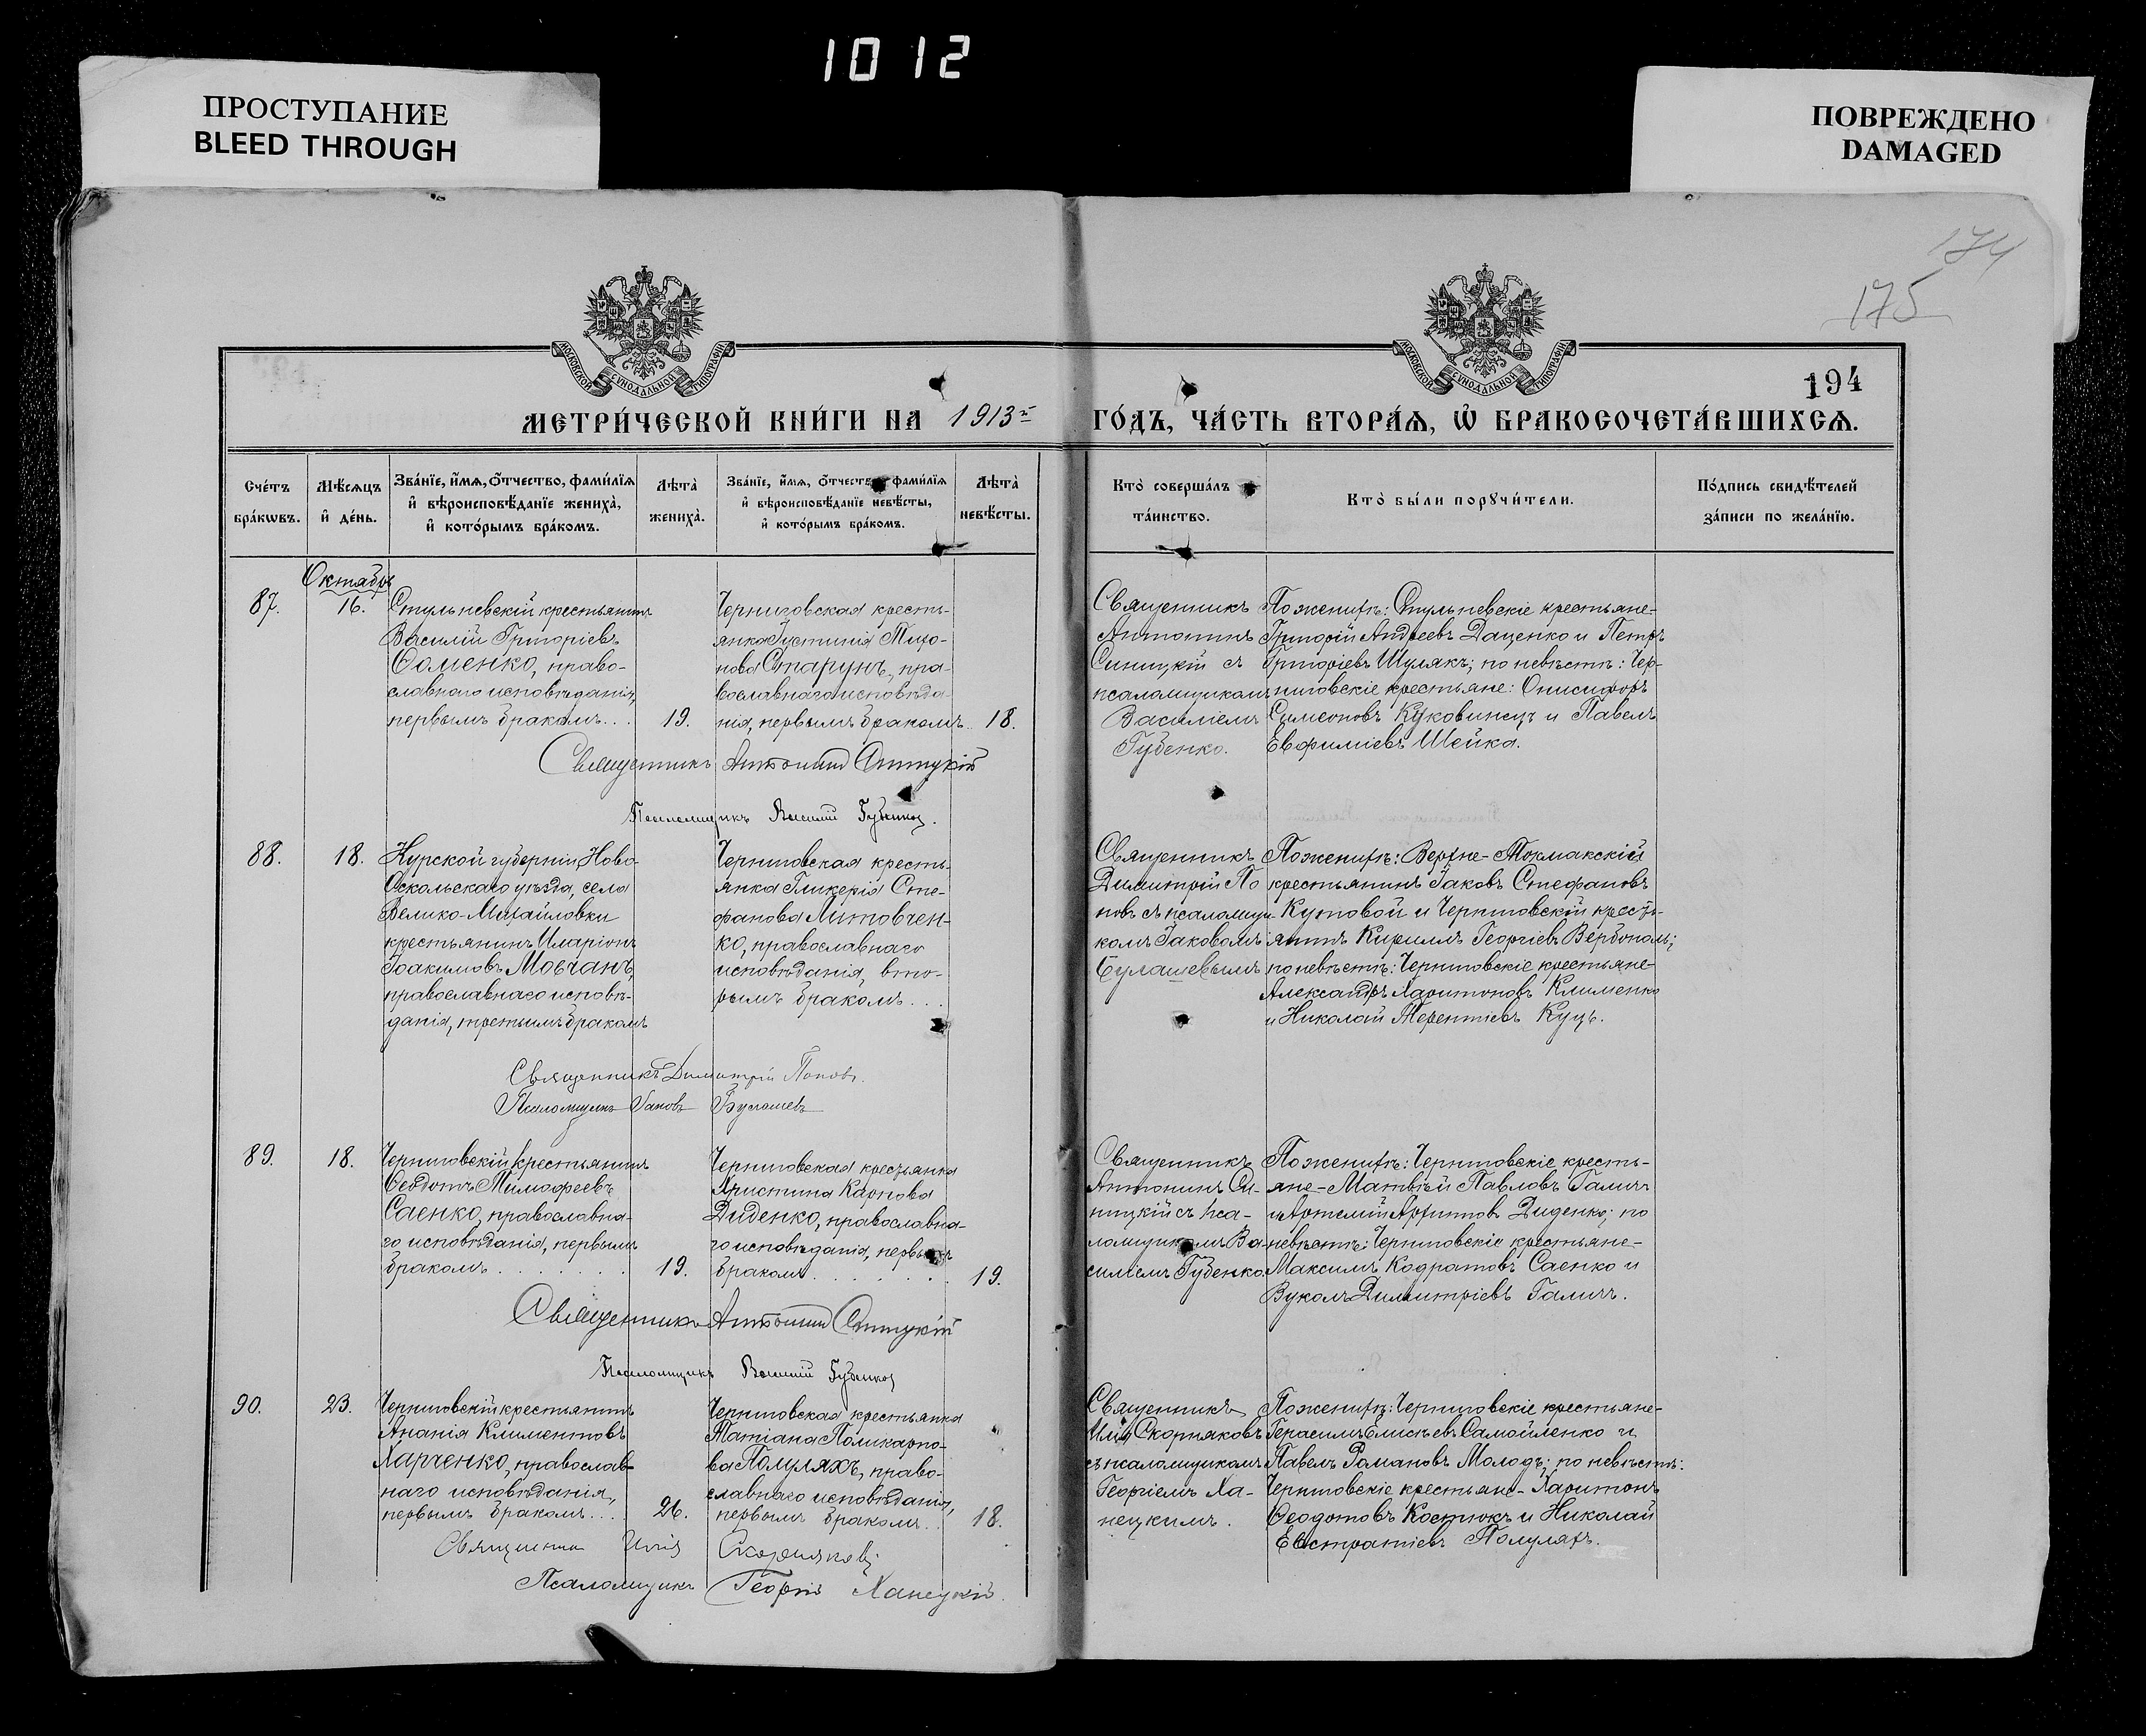 1012
ПРОСТУПАНИЕ
BLEED THROUGH
ПОВРЕЖДЕНО
DAMAGED
174
175
194
МОСКОВСКОЙ СѴНОДАЛЬНОЙ ТИПОГРАФІИ
МОСКОВСКОЙ СѴНОДАЛЬНОЙ ТИПОГРАФІИ
МЕТРИ́ЧЕСКОЙ КНИ́ГИ НА 1913й ГО́ДЪ, ЧА́СТЬ ВТОРА́Ѧ, Ѽ БРАКОСОЧЕТА́ВШИХСѦ.
Сче́тъ бра́кѡвъ.
Мѣ́сѧцъ и҆ де́нь.
Зва́нїе, и҆́мѧ, ѻ҆́тчество, фами́лїѧ и҆ вѣроисповѣ́данїе жениха̀, и҆ кото́рымъ бра́комъ.
Лѣта̀ жениха̀.
Зва́нїе, и҆́мѧ, ѻ҆́тчество, фами́лїѧ и҆ вѣроисповѣ́данїе невѣ́сты, и҆ кото́рымъ бра́комъ.
Лѣта̀ невѣ́сты.
Кто̀ соверша́лъ та́инство.
Кто̀ бы́ли порꙋчи́тели.
По́дпись свидѣ́телей за́писи по жела́нїю.
Октябрь
87.
16.
Стульневскій крестьянинъ
Василій Григоріевъ
Фоменко, право-
славнаго исповѣданія,
первымъ бракомъ...
19.
Черниговская кресть-
янка Іустинія Тихо-
нова Старунъ, пра-
вославнаго исповѣда-
нія, первымъ бракомъ..
18.
Священникъ
Антонинъ
Синицкій съ
псаломщикомъ
Василіемъ
Губенко.
По женихѣ: Стульневскіе крестьяне-
Григорій Андреевъ Даценко и Петръ
Григоріевъ Шулякъ; по невѣстѣ: Чер-
ниговскіе крестьяне: Онисифоръ
Симеоновъ Куковинецъ и Павелъ
Евфиміевъ Шейка.
Священникъ Антонин Синицкій
Псаломщикъ Василій Губенко.
88.
18.
Курской губерніи, Ново-
Оскольскаго уѣзда, села
Велико-Михайловки
крестьянинъ Иларіонъ
Іоакимовъ Мовчанъ,
православнаго исповѣ-
данія, третьимъ бракомъ
Черниговская кресть-
янка Гликерія Сте-
фанова Литовчен-
ко, православнаго
исповѣданія, вто-
рымъ бракомъ...
Священникъ
Димитрій По
повъ съ псаломщи-
комъ Іаковомъ
Булашевымъ
По женихѣ: Верхне-Токмакскій
крестьянинъ Іаковъ Стефановъ
Кутовой и Черниговскій кресть-
янинъ Кириллъ Георгіевъ Вербополъ;
по невѣстѣ: Черниговскіе крестьяне-
Александръ Харитоновъ Клименко
и Николай Терентіевъ Куцъ.
Священникъ Димитрій Поповъ.
Псаломщикъ Іаковъ Булашевъ
89.
18.
Черниговскій крестьянинъ
Ѳеодотъ Тимоѳеевъ
Саенко, православна-
го исповѣданія, первымъ
бракомъ.......
19.
Черниговская крестьянка
Христина Карпова
Диденко, православна-
го исповѣданія, первымъ
бракомъ.......
19.
Священникъ
Антонинъ Си-
ницкій съ пса-
ломщикомъ Ва-
силіемъ Губенко.
По женихѣ: Черниговскіе кресть-
яне-Матвѣй Павловъ Галичъ
и Артемій Архиповъ Диденко; по
невѣстѣ: Черниговскіе крестьяне-
Максимъ Кодратовъ Саенко и
Вуколъ Димитріевъ Галичъ.
Священникъ Антонин Синицкій
Псаломщикъ Василій Губенко
90.
23.
Черниговскій крестьянинъ
Ананія Климентовъ
Харченко, православ-
наго исповѣданія,
первымъ бракомъ...
26.
Черниговская крестьянка
Татіана Поликарпо-
ва Полуляхъ, право-
славнаго исповѣданія,
первымъ бракомъ..
18.
Священникъ
Илія Скорняковъ
съ псаломщикомъ
Георгіемъ Ха-
нецкимъ.
По женихѣ: Черниговскіе крестьяне-
Герасимъ Елисѣевъ Самойленко и
Павелъ Романовъ Молодъ; по невѣстѣ:
Черниговскіе крестьяне-Харитонъ
Ѳеодотовъ Костюкъ и Николай
Евстратіевъ Полуляхъ.
Священникъ Илія Скорняковъ
Псаломщикъ Георгій Ханецкій.